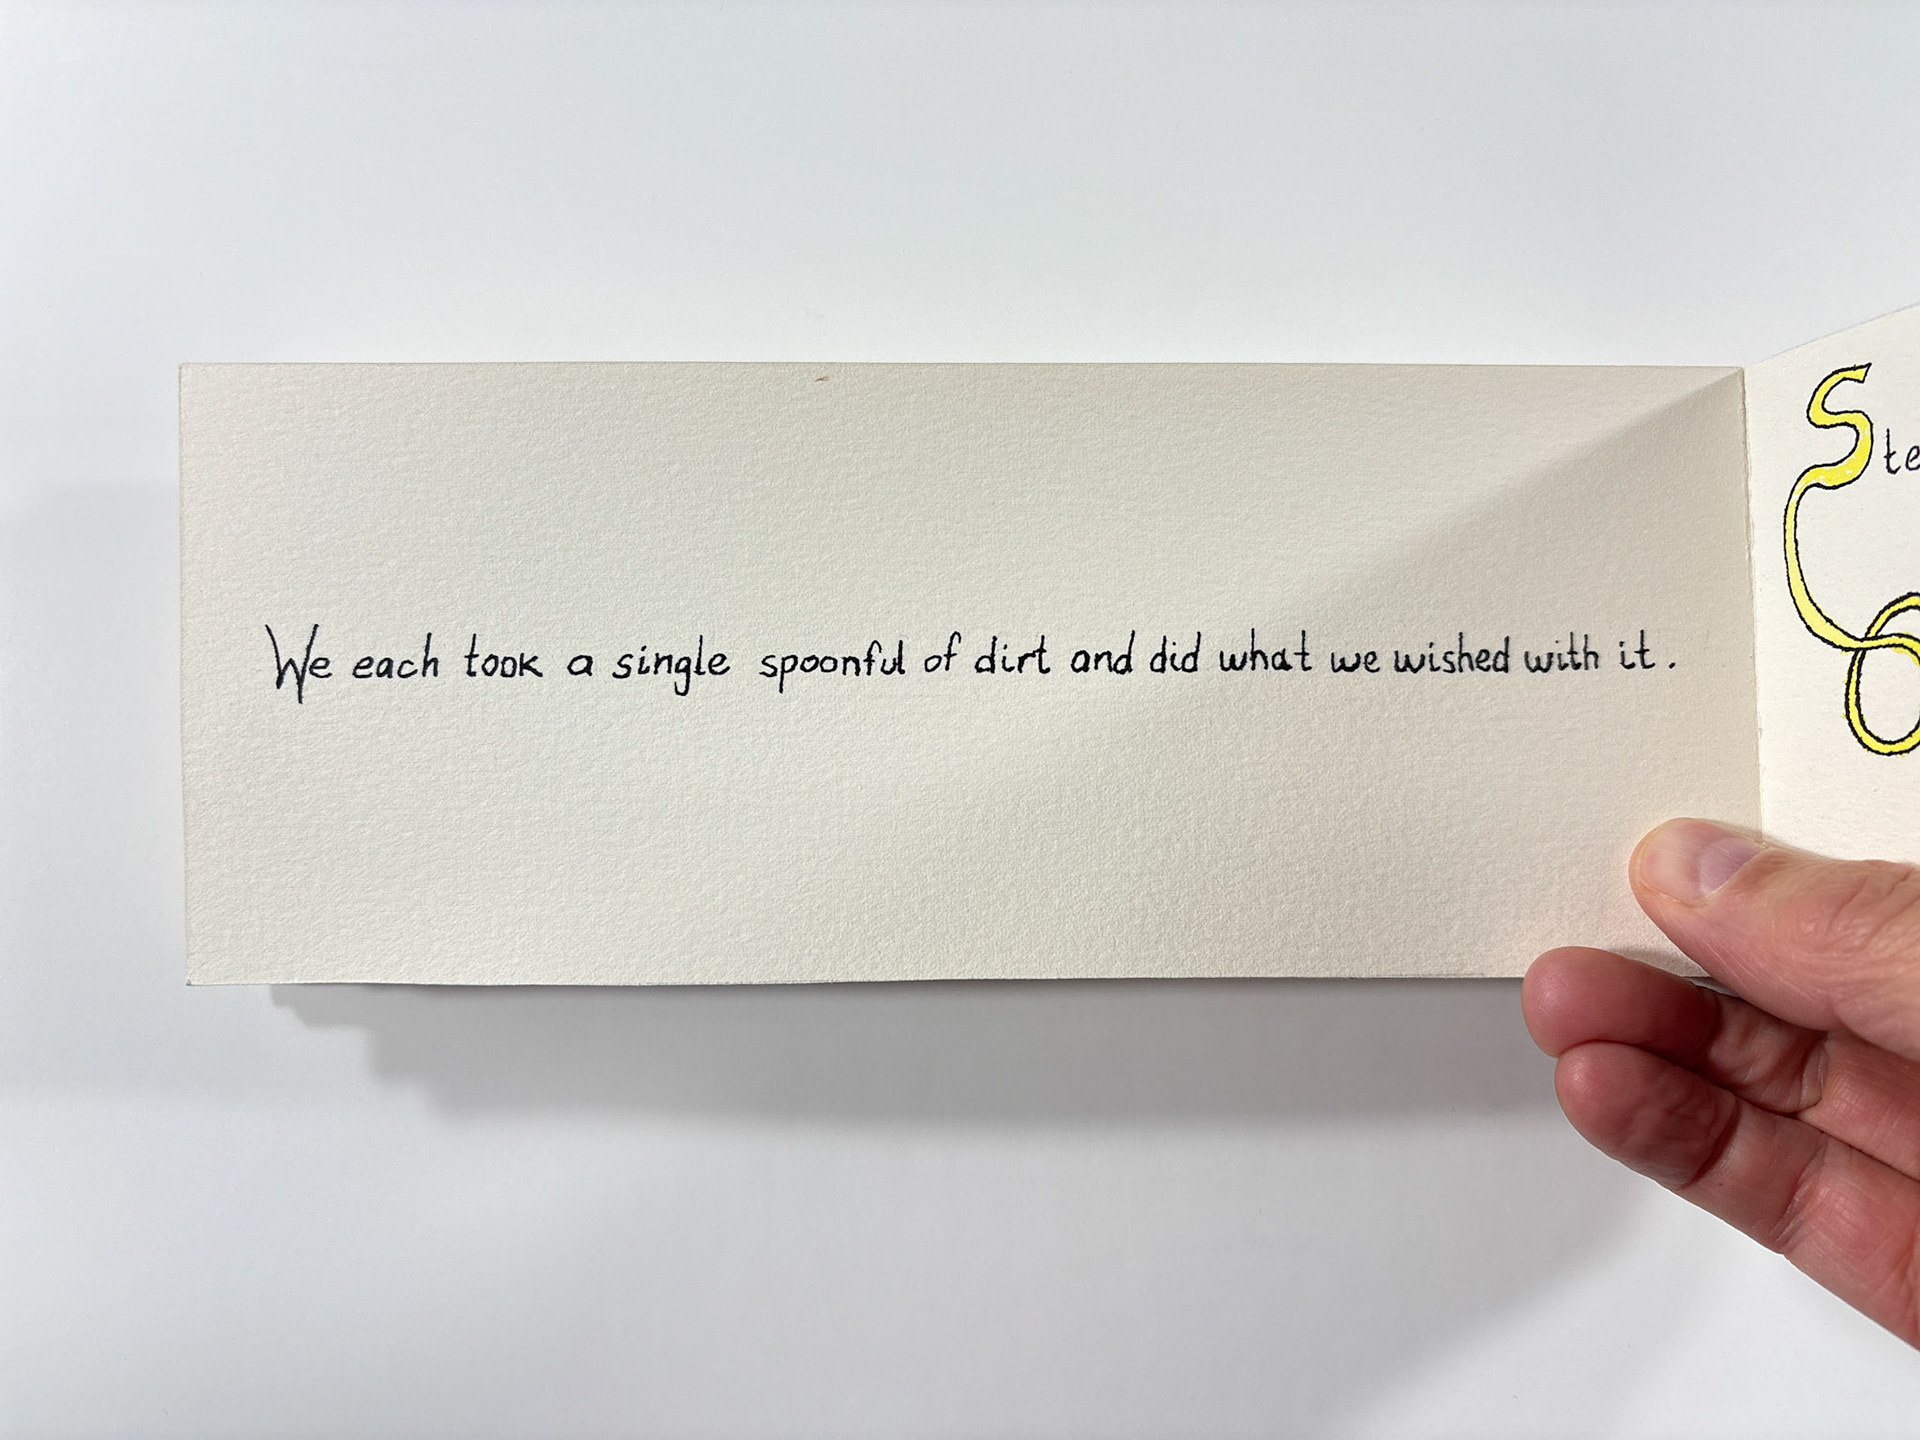 We each took a single spoonful of dirt and did what we wished with it.
Ste